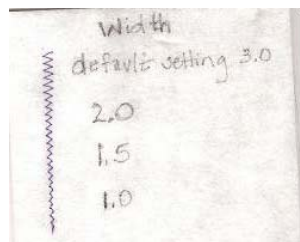 Width
default setting 3.0
2.0
1.5
1.0